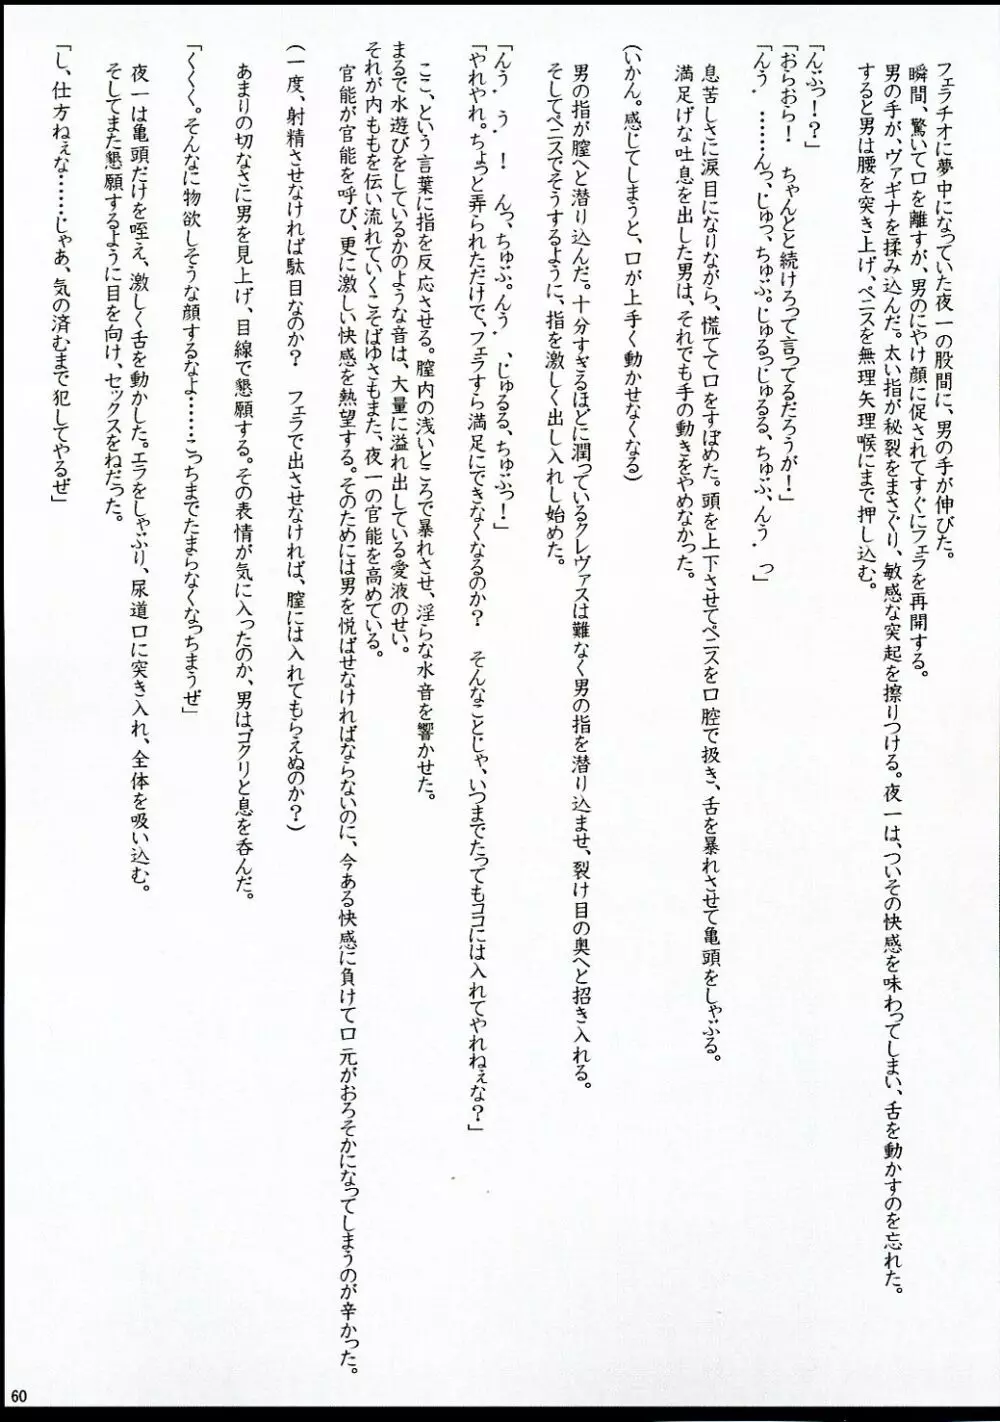 フェラチオに夢中になっていた夜一の股間に、男の手が伸びた。
瞬間、驚いて口を離すが、男のにやけ顔に促されてすぐにフェラを再開する。
男の手が、ヴァギナを揉み込んだ。太い指が秘裂をまさぐり、敏感な突起を擦りつける。夜一は、ついその快感を味わってしまい、舌を動かすのを忘れた。
すると男は腰を突き上げ、ペニスを無理矢理喉にまで押し込む。
「んぶっ！？」
「おらおら！　ちゃんとと続けろって言ってるだろうが！」
「んぅ゛……んっ、じゅっ、ちゅぶ。じゅるっじゅるる、ちゅぶ、んぅ゛っ」
息苦しさに涙目になりながら、慌てて口をすぼめた。頭を上下させてペニスを口腔で扱き、舌を暴れさせて亀頭をしゃぶる。
満足げな吐息を出した男は、それでも手の動きをやめなかった。
（いかん。感じてしまうと、口が上手く動かせなくなる）
男の指が膣へと潜り込んだ。十分すぎるほどに潤っているクレヴァスは難なく男の指を潜り込ませ、裂け目の奥へと招き入れる。
そしてペニスでそうするように、指を激しく出し入れし始めた。
「んぅ゛ぅ゛！　んっ、ちゅぶ。んぅ゛、じゅるる、ちゅぶっ！」
「やれやれ。ちょっと弄られただけで、フェラすら満足にできなくなるのか？　そんなことじゃ、いつまでたってもココには入れてやれねぇな？」
ここ、という言葉に指を反応させる。膣内の浅いところで暴れさせ、淫らな水音を響かせた。
まるで水遊びをしているかのような音は、大量に溢れ出している愛液のせい。
それが内ももを伝い流れていくこそばゆさもまた、夜一の官能を高めている。
官能が官能を呼び、更に激しい快感を熱望する。そのためには男を悦ばせなければならないのに、今ある快感に負けて口元がおろそかになってしまうのが辛かった。
（一度、射精させなければ駄目なのか？　フェラで出させなければ、膣には入れてもらえぬのか？）
あまりの切なさに男を見上げ、目線で懇願する。その表情が気に入ったのか、男はゴクリと息を呑んだ。
「くくく。そんなに物欲しそうな顔するなよ……こっちまでたまらなくなっちまうぜ」
夜一は亀頭だけを咥え、激しく舌を動かした。エラをしゃぶり、尿道口に突き入れ、全体を吸い込む。
そしてまた懇願するように目を向け、セックスをねだった。
「し、仕方ねぇな……じゃあ、気の済むまで犯してやるぜ」
60